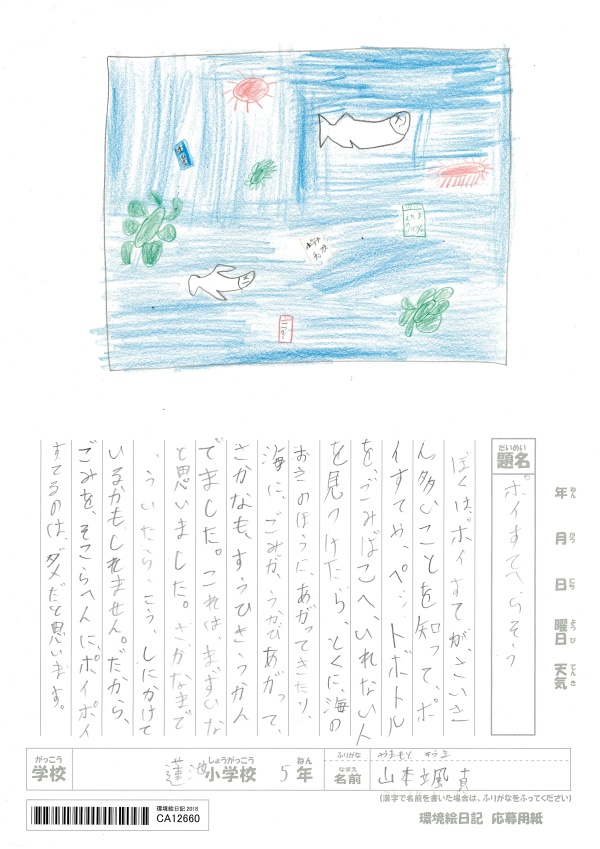 だいめい
題名
ポイすてへらそう
年 ねん
月 がつ
日 にち
曜日 ようび
天気 てんき
ぼくは、ポイすてが、さいき
ん多いことを知って、ポ
イすてや、ペットボトル
を、ごみばこへ、いれない人
を見つけたら、とくに、海の
おきのほうに、あがってきたり、
海に、ごみが、うかびあがって、
さかなも、すうひき、うかん
でました。これは、まずいな
と思いました。さかなまで
ういたら、こう、しにかけて
いるかも、しれません。だから、
ごみを、そこらへんに、ポイポイ
すてるのは、ダメだと思います。
がっこう
学校
蓮池
しょうがっこう
小学校
5
ねん
年
ふりがな
なまえ
名前
山本颯真
(漢字で名前を書いた場合は、ふりがなをふってください)
環境絵日記 2018
CA12660
環境絵日記 応募用紙